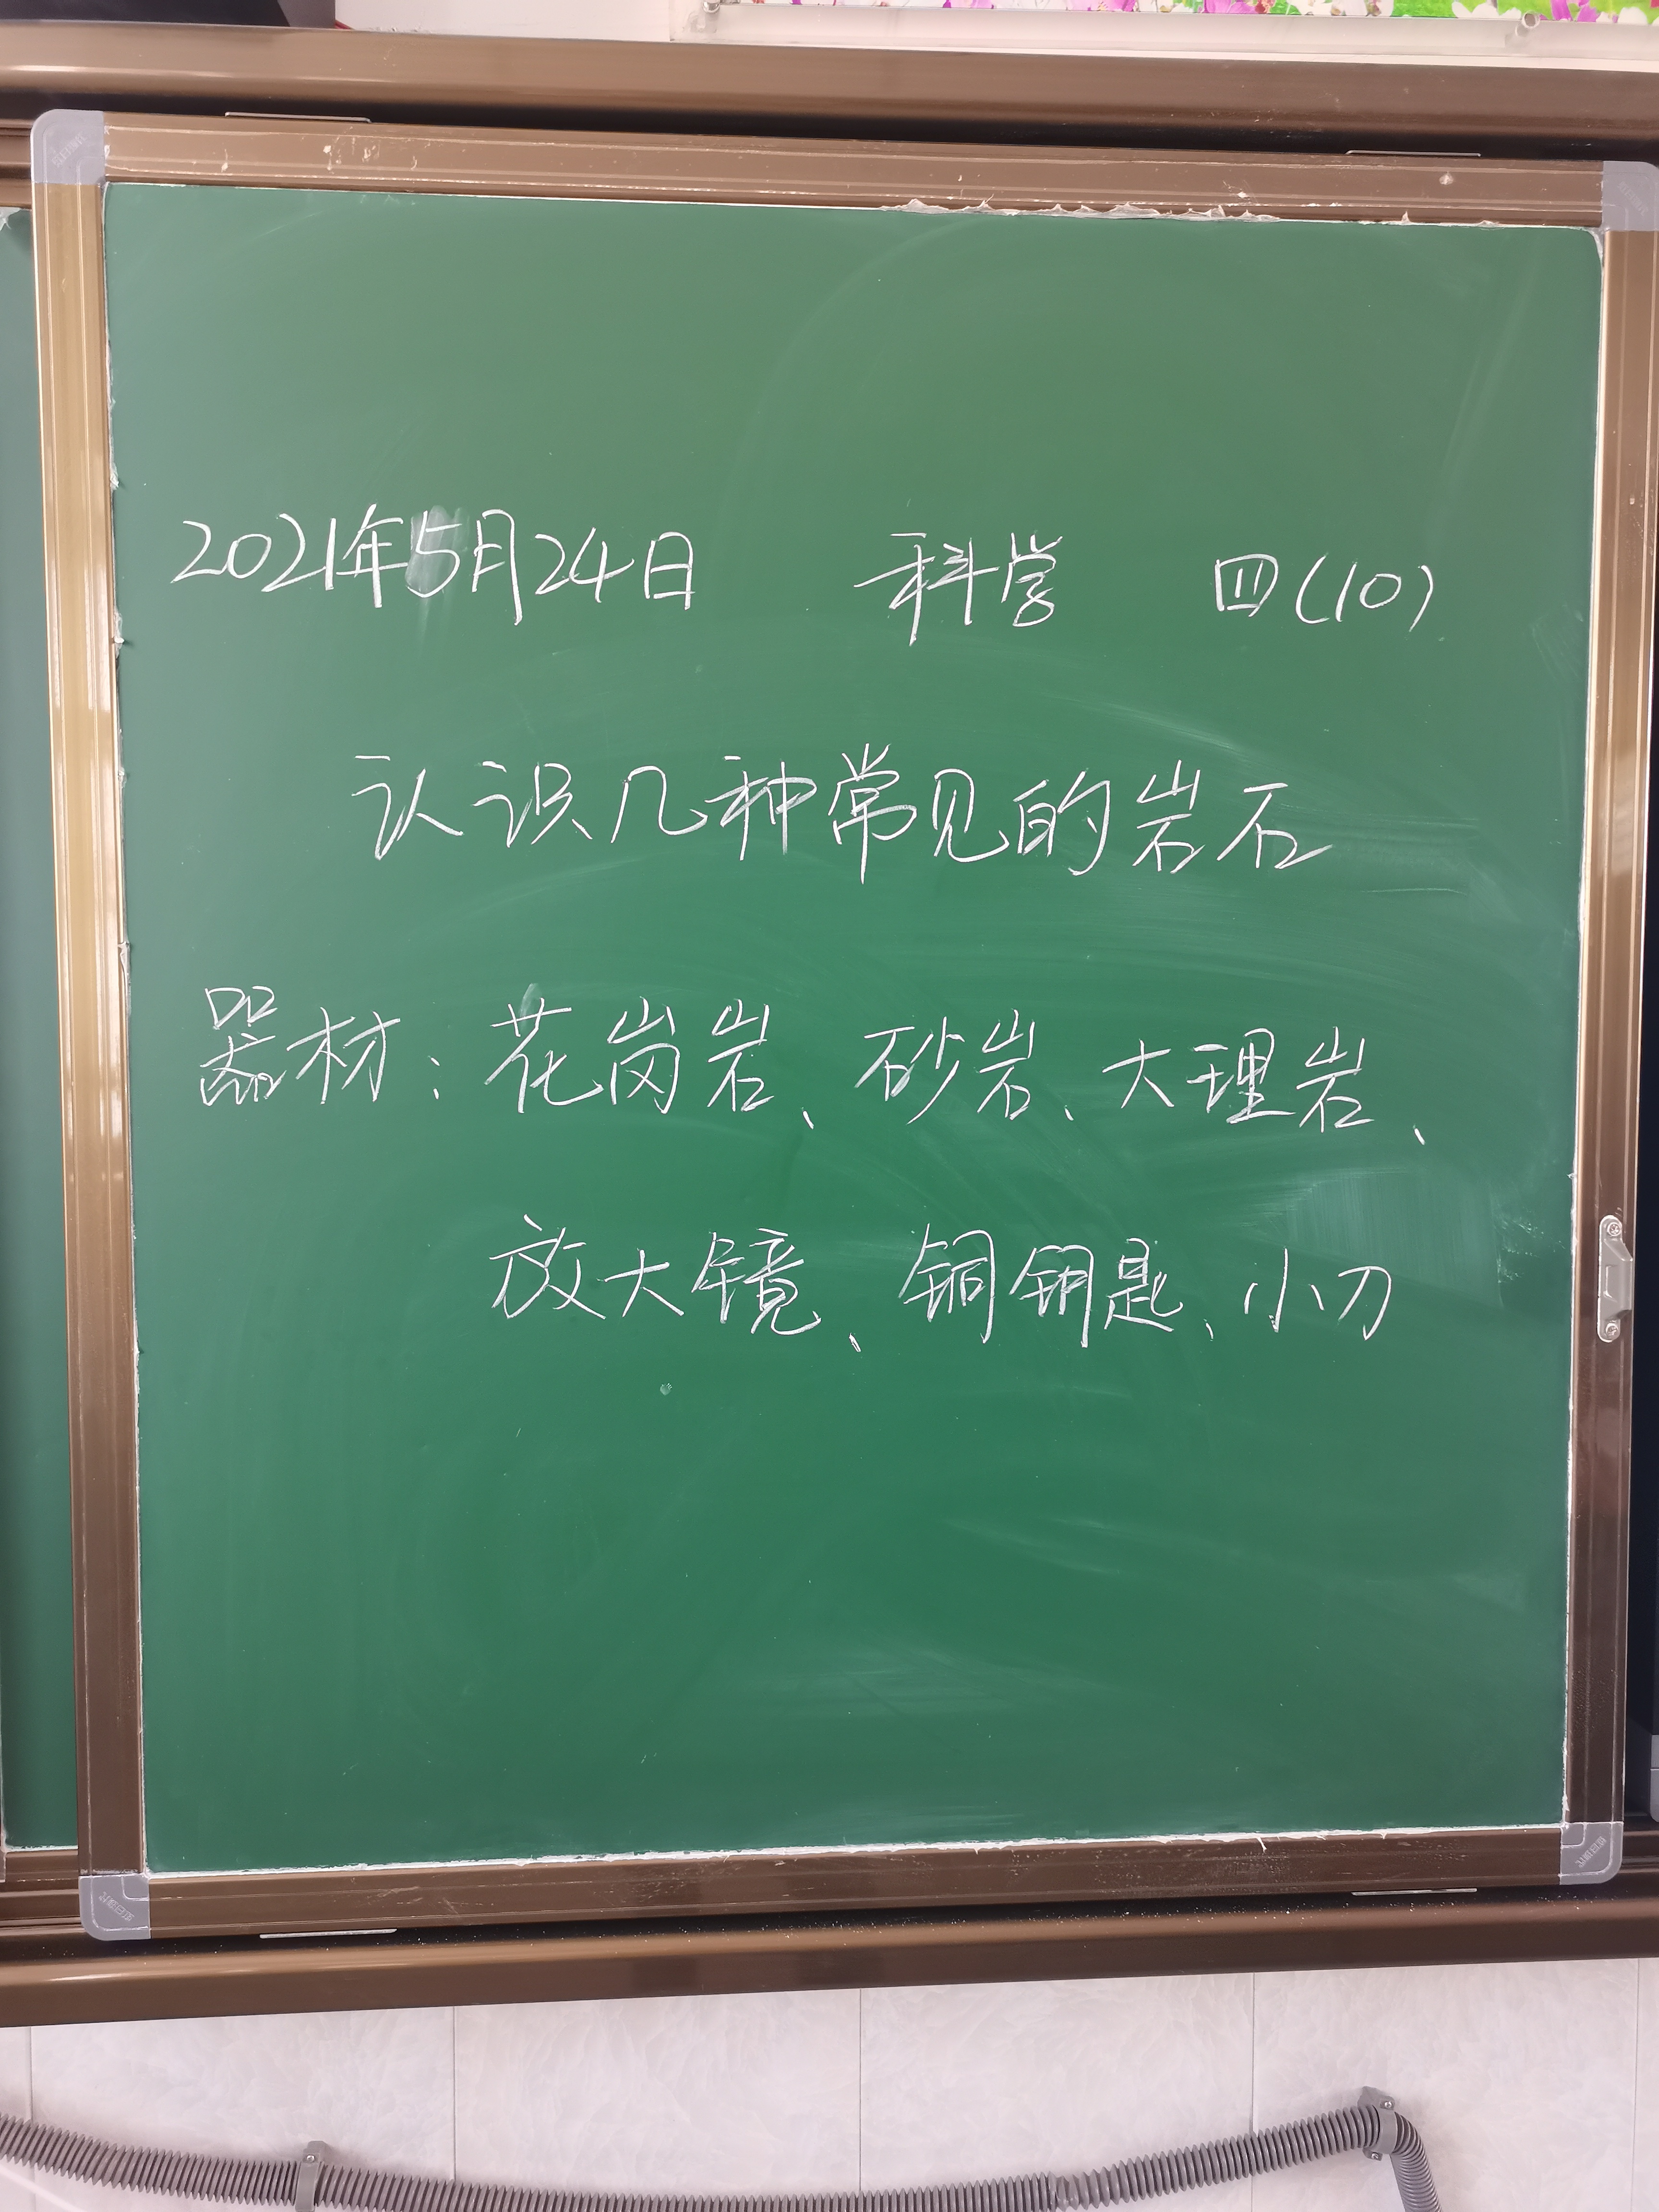 2021年5月24日 科学 四(10)
认识几种常见的岩石
器材：花岗岩、砂岩、大理岩、
放大镜、铜钥匙、小刀